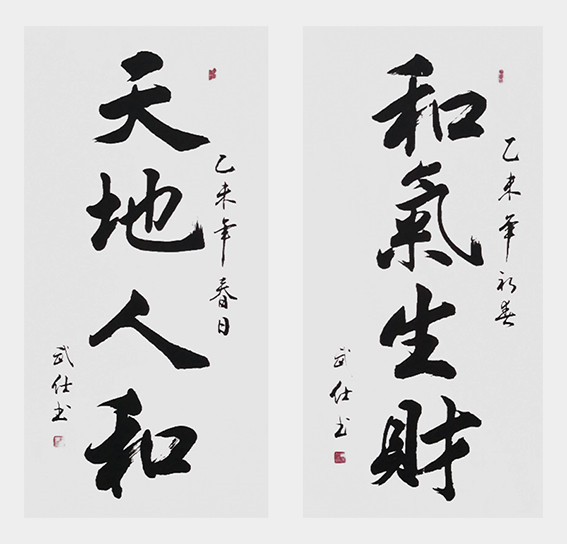 乙未年初春
和氣生財
武仕书
乙未年春日
天地人和
武仕书